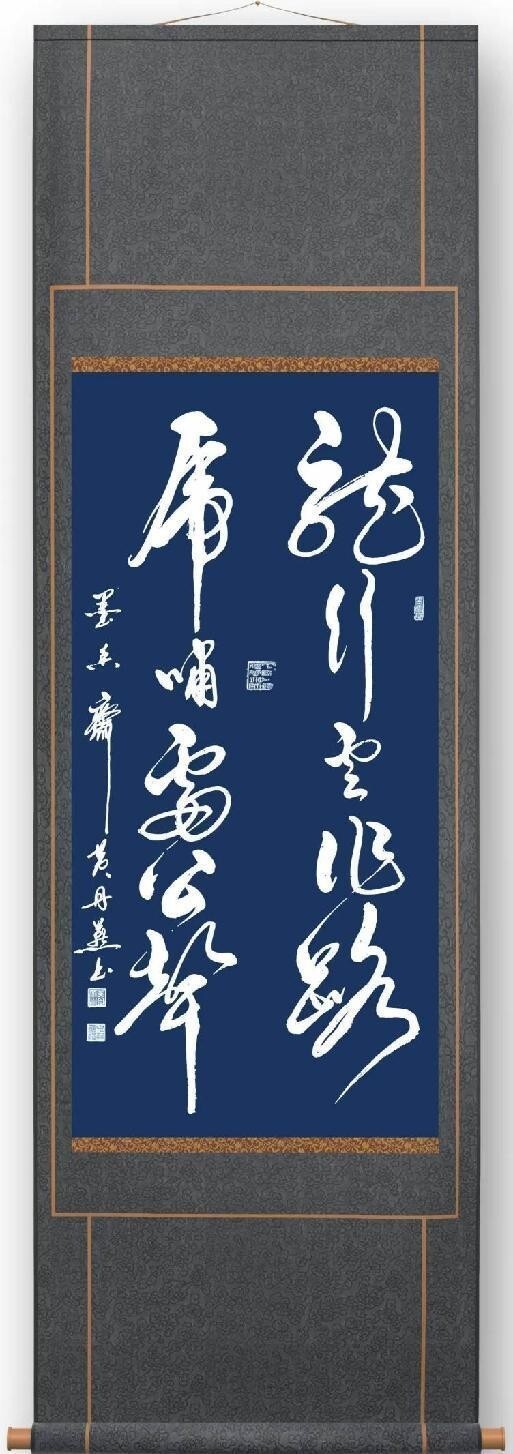 龍行云作路
虎嘯雷公聲
墨香齋 黄丹燕书